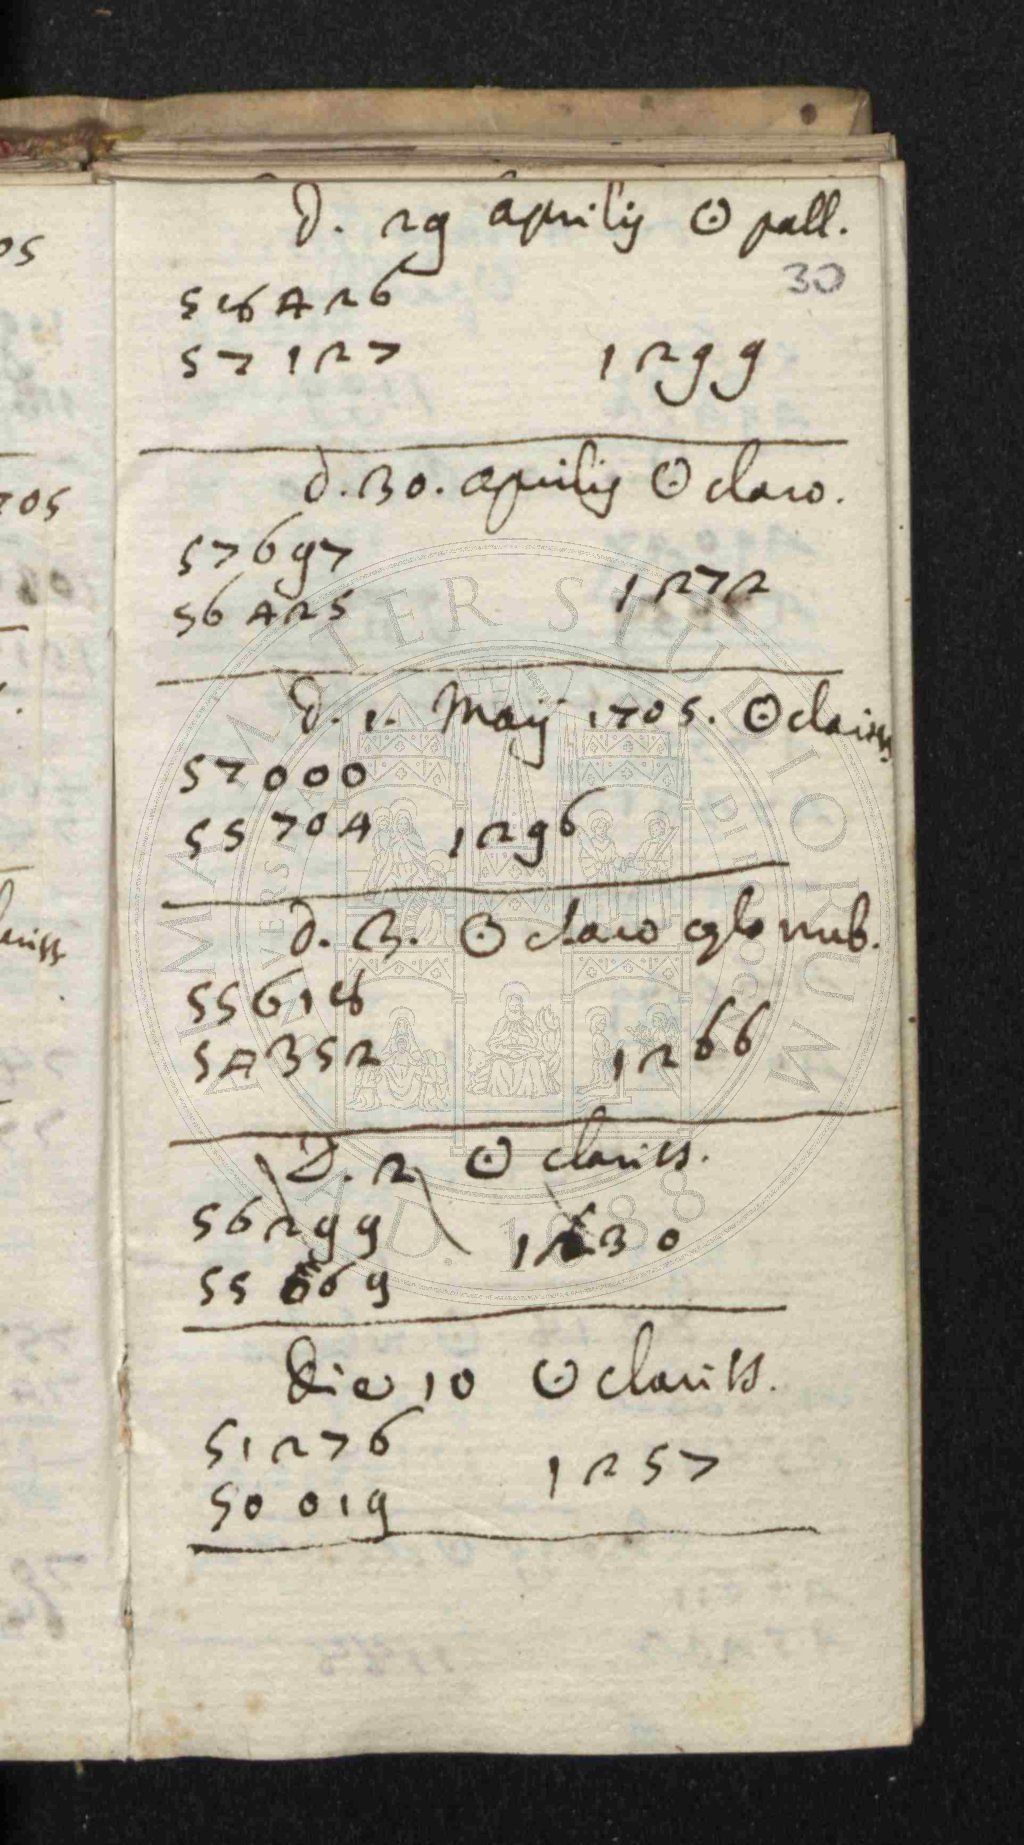 05
705
d. 29 aprilis ☉ pall.
30
58426
57127 1299
d. 30. aprilis ☉ claro.
57697
56425 1272
d. 1. Maij 1705. ☉ clariss
57000
55704 1296
d. 3. ☉ claro cęlo nub.
55618
54352 1266
D. 2 ☉ clariss.
56299 1230
55069
die 10 ☉ clariss.
51276
50019 1257
ALMA MATER STUDIORUM
A.D. 1088